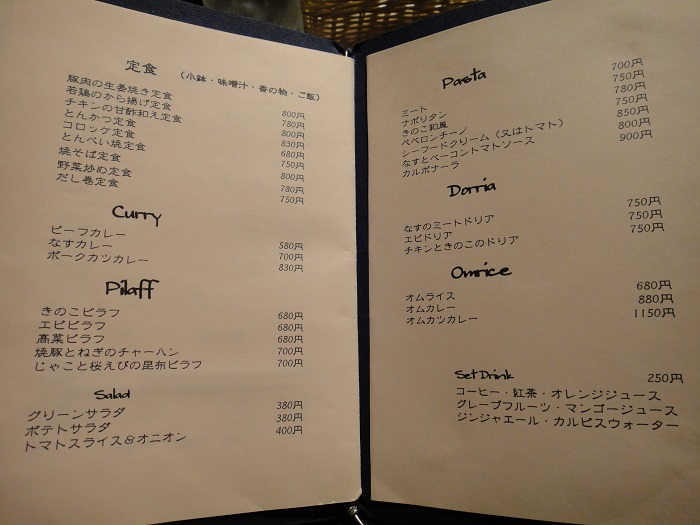 定食 （小鉢・味噌汁・香の物・ご飯）
豚肉の生姜焼き定食 800円
若鶏のから揚げ定食 780円
チキンの甘酢和え定食 800円
とんかつ定食 830円
コロッケ定食 680円
とんぺい焼定食 750円
焼そば定食 800円
野菜炒め定食 780円
だし巻定食 750円
Curry
ビーフカレー 580円
なすカレー 700円
ポークカツカレー 830円
Pilaff
きのこピラフ 680円
エビピラフ 680円
高菜ピラフ 680円
焼豚とねぎのチャーハン 700円
じゃこと桜えびの昆布ピラフ 700円
Salad
グリーンサラダ 380円
ポテトサラダ 380円
トマトスライス&オニオン 400円
Pasta
ミート 700円
ナポリタン 750円
きのこ和風 780円
ペペロンチーノ 750円
シーフードクリーム（又はトマト） 850円
なすとベーコントマトソース 800円
カルボナーラ 900円
Dorria
なすのミートドリア 750円
エビドリア 750円
チキンときのこのドリア 750円
Omrice
オムライス 680円
オムカレー 880円
オムカツカレー 1150円
Set Drink 250円
コーヒー・紅茶・オレンジジュース
グレープフルーツ・マンゴージュース
ジンジャエール・カルピスウォーター